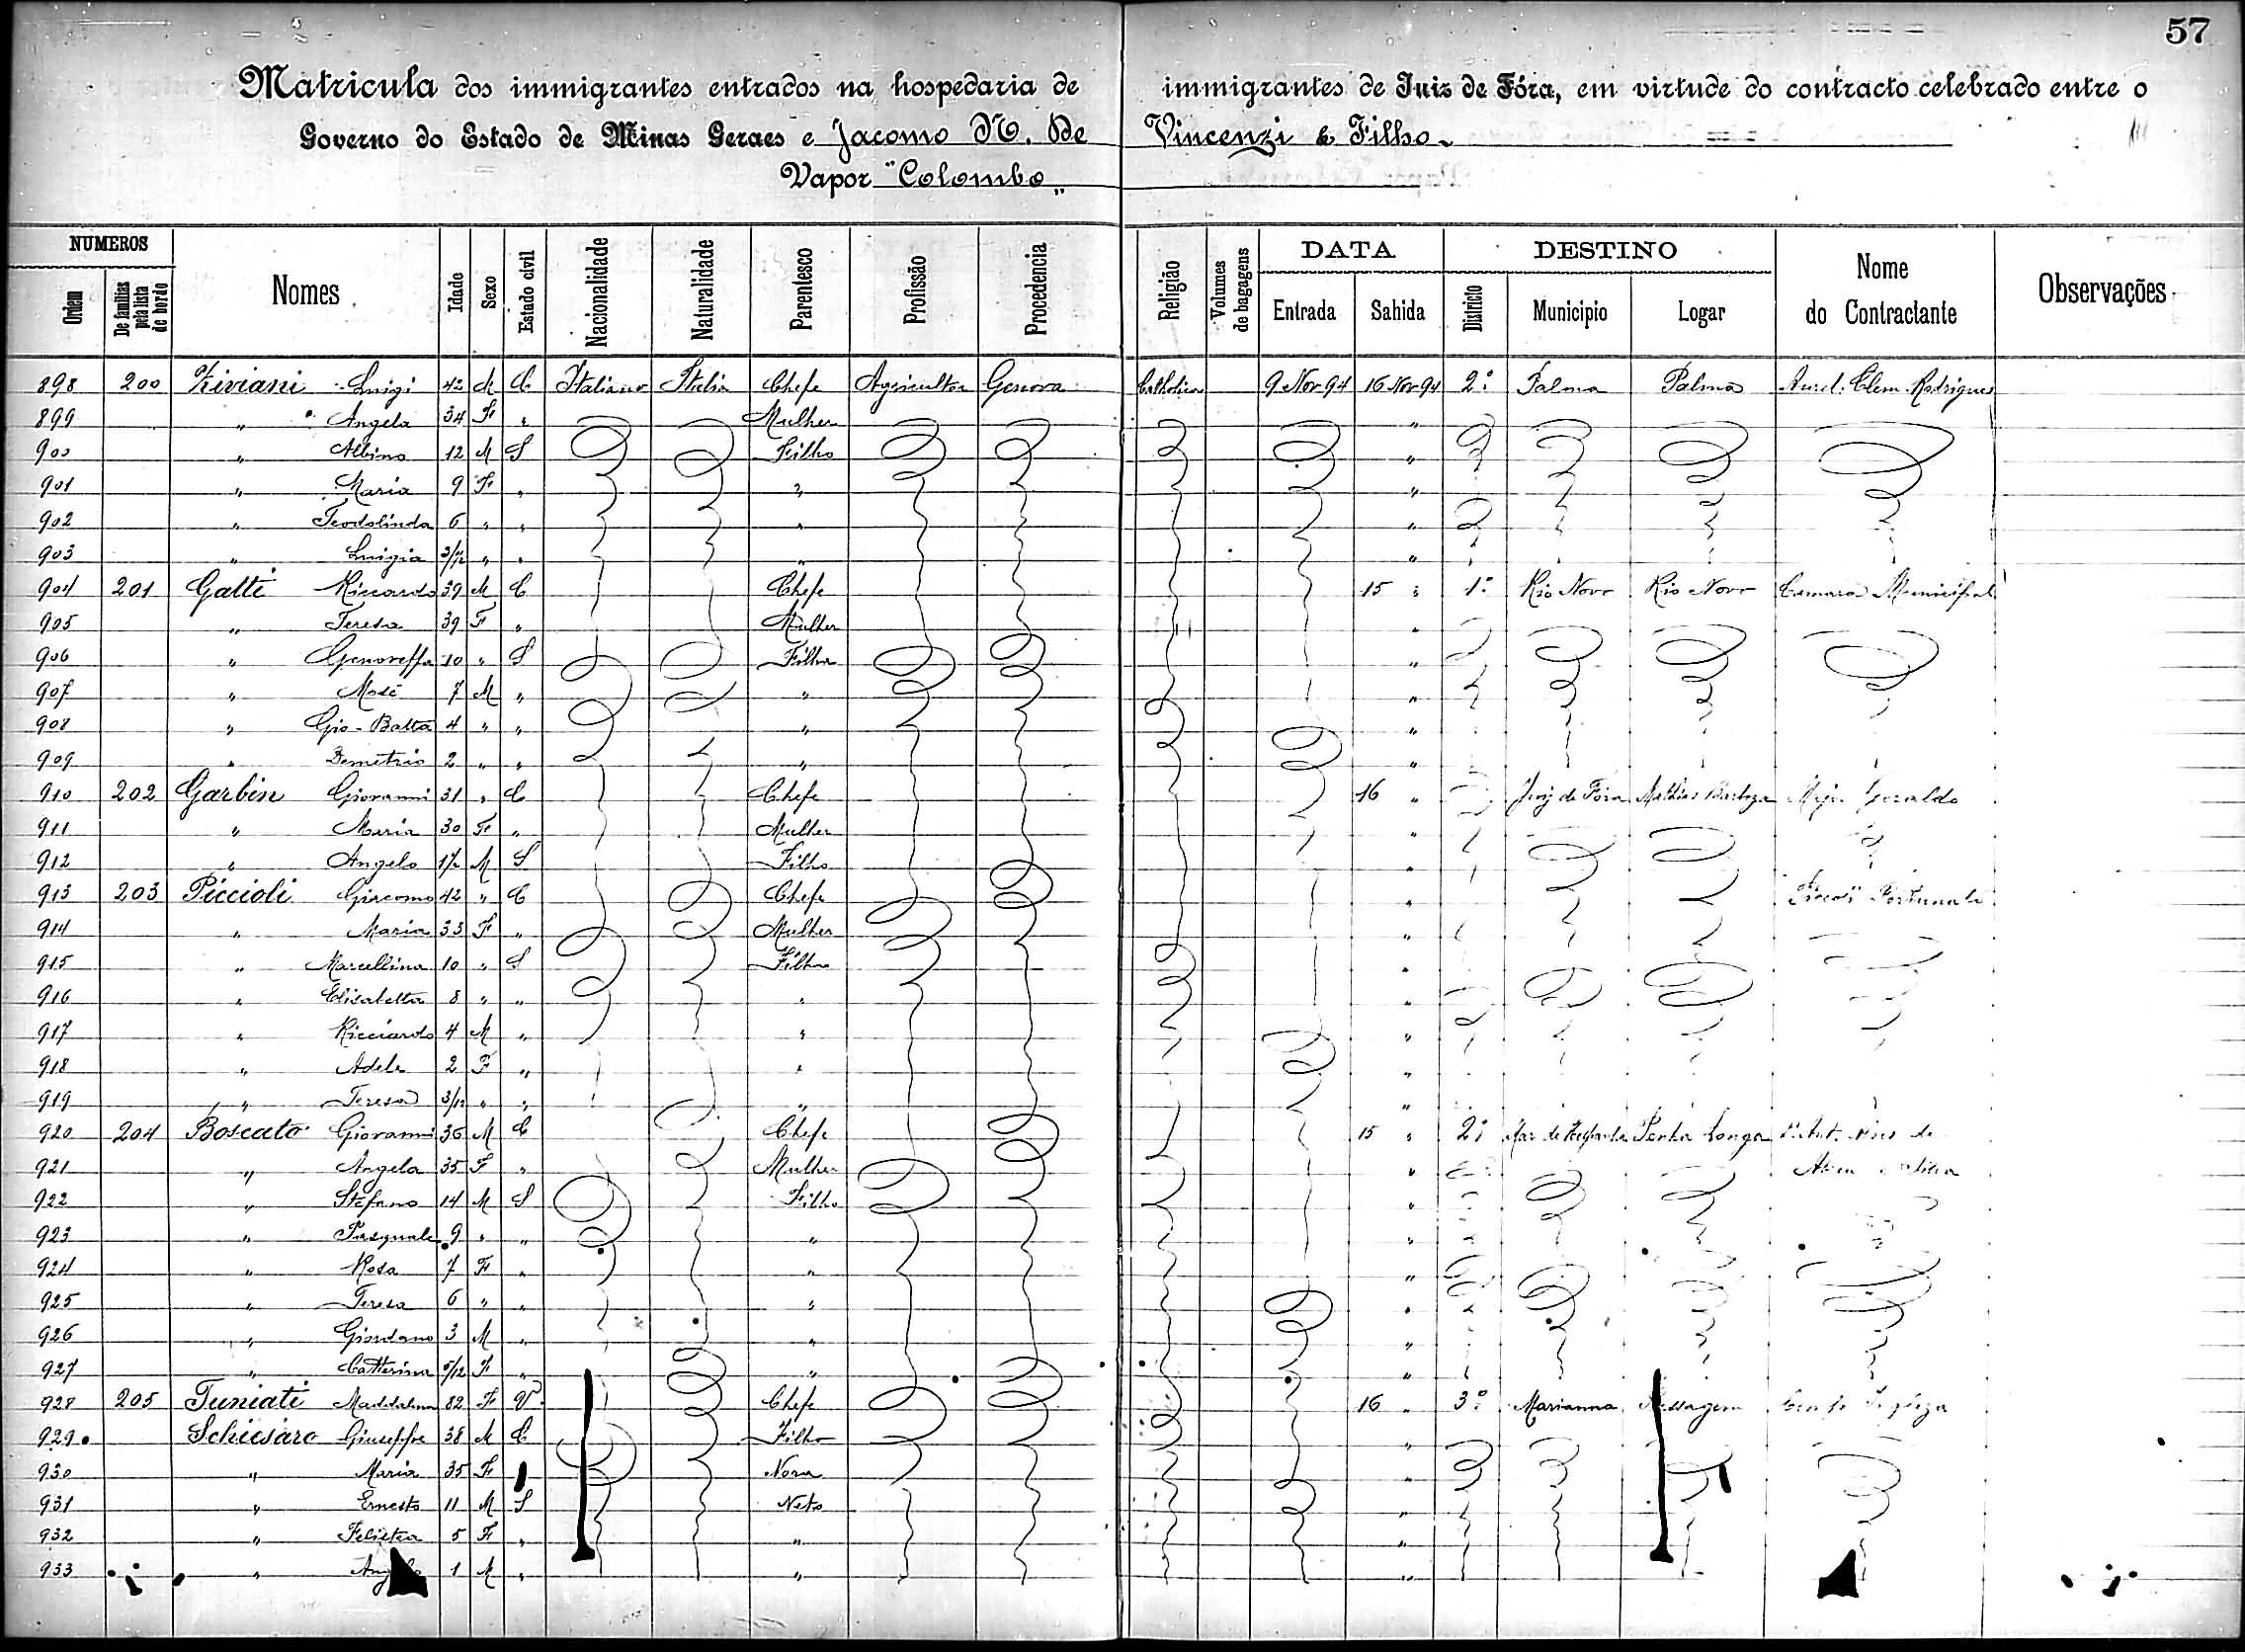 57
Matricula dos immigrantes entrados na hospedaria de immigrantes de Juiz de Fóra, em virtude do contracto celebrado entre o
Governo do Estado de Minas Geraes e Jacomo N. De Vincenzi & Filho
Vapor "Colombo"
NUMEROS DATA DESTINO
Ordem De familias pela lista de bordo Nomes Idade Sexo Estado civil Nacionalidade Naturalidade Parentesco Profissão Procedencia Religião Volumes de bagagens Entrada Sahida Districto Municipio Logar Nome do Contractante Observações
898 200 Ziviani Luigi 42 M C Italiano Italia Chefe Agricultor Genova Catholica 9 Nov 94 16 Nov 94 2º Palma Palma Aurel. Clem. Rodrigues
899 " Angela 34 F " Mulher "
900 " Albino 12 M S Filho "
901 " Maria 9 F " " "
902 " Teodolinda 6 " " " "
903 " Luigia " " " "
904 201 Gatti Riccardo 39 M C Chefe 15 " 1º Rio Novo Rio Novo Camara Municipal
905 " Teresa 39 F " Mulher "
906 " Genoveffa 10 " S Filha "
907 " Mosè 7 M " " "
908 " Gio-Batta 4 " " " "
909 " Demetrio 2 " " " "
910 202 Garbin Giovanni 31 " C Chefe 16 " Juiz de Fóra Mathias Barboza Geraldo
911 " Maria 30 F " Mulher "
912 " Angelo M S Filho "
913 203 Piccioli Giacomo 42 " C Chefe "
914 " Maria 33 F " Mulher "
915 " Marcellina 10 " S Filha "
916 " Elisabetta 8 " " " "
917 " Ricciardo 4 M " " "
918 " Adele 2 F " " "
919 " Teresa 3/12 " " " "
920 204 Boscato Giovanni 36 M C Chefe 15 " 2º Mar de Hespanha Penha Longa
921 " Angela 35 F " Mulher "
922 " Stefano 14 M S Filho "
923 " Pasquale 9 " " " "
924 " Rosa 7 F " " "
925 " Teresa 6 " " " "
926 " Giordano 3 M " " "
927 " Catterina 5/12 F " " "
928 205 Tuniati Maddalena 82 F V Chefe 16 " 3º Marianna Passagem
929 Schiesaro Giuseppe 38 M C Filho "
930 " Maria 35 F Nora "
931 " Ernesto 11 M S Neto "
932 " 5 F " " "
933 " 1 M " " "